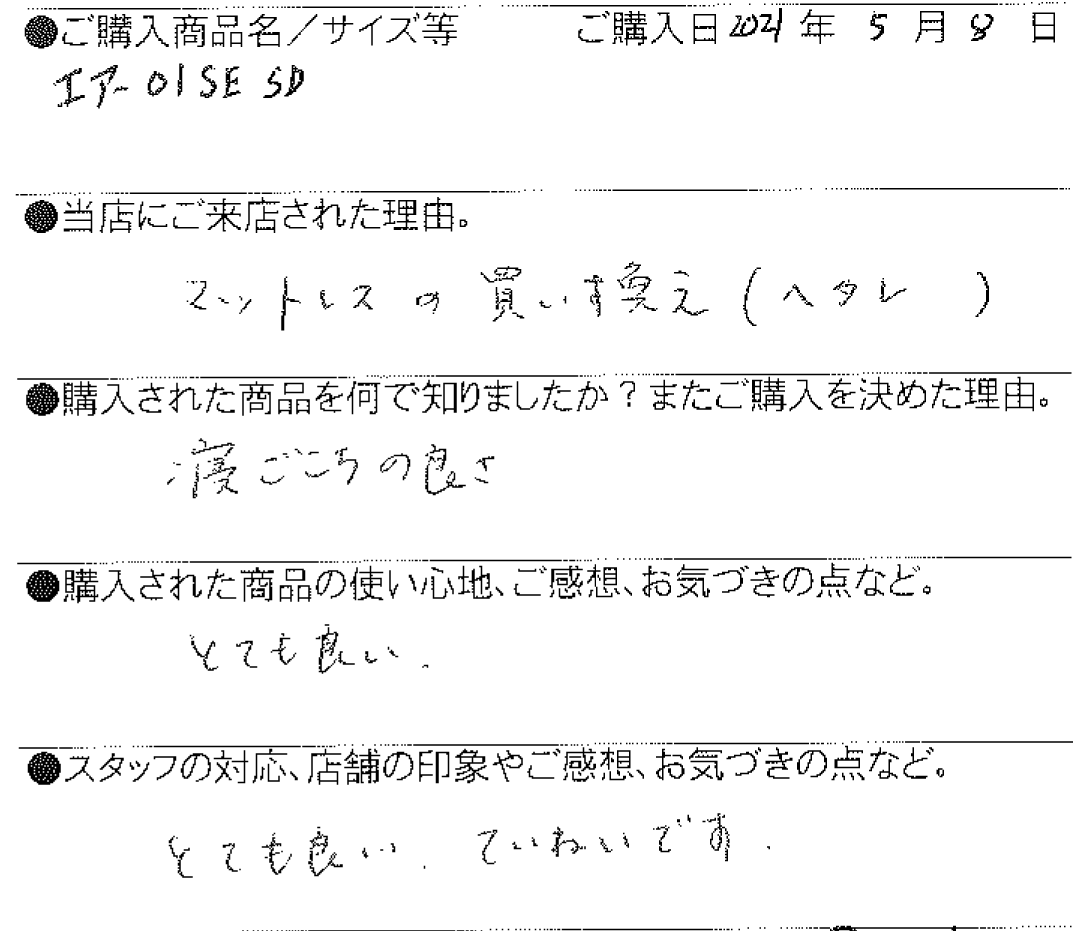 ●ご購入商品名／サイズ等 ご購入日2021年 5月 8日
エアー 01 SE SD
●当店にご来店された理由。
マットレスの買い換え(ヘタレ )
●購入された商品を何で知りましたか？またご購入を決めた理由。
寝ごこちの良さ
●購入された商品の使い心地、ご感想、お気づきの点など。
とても良い.
●スタッフの対応、店舗の印象やご感想、お気づきの点など。
とても良い. ていねいです.